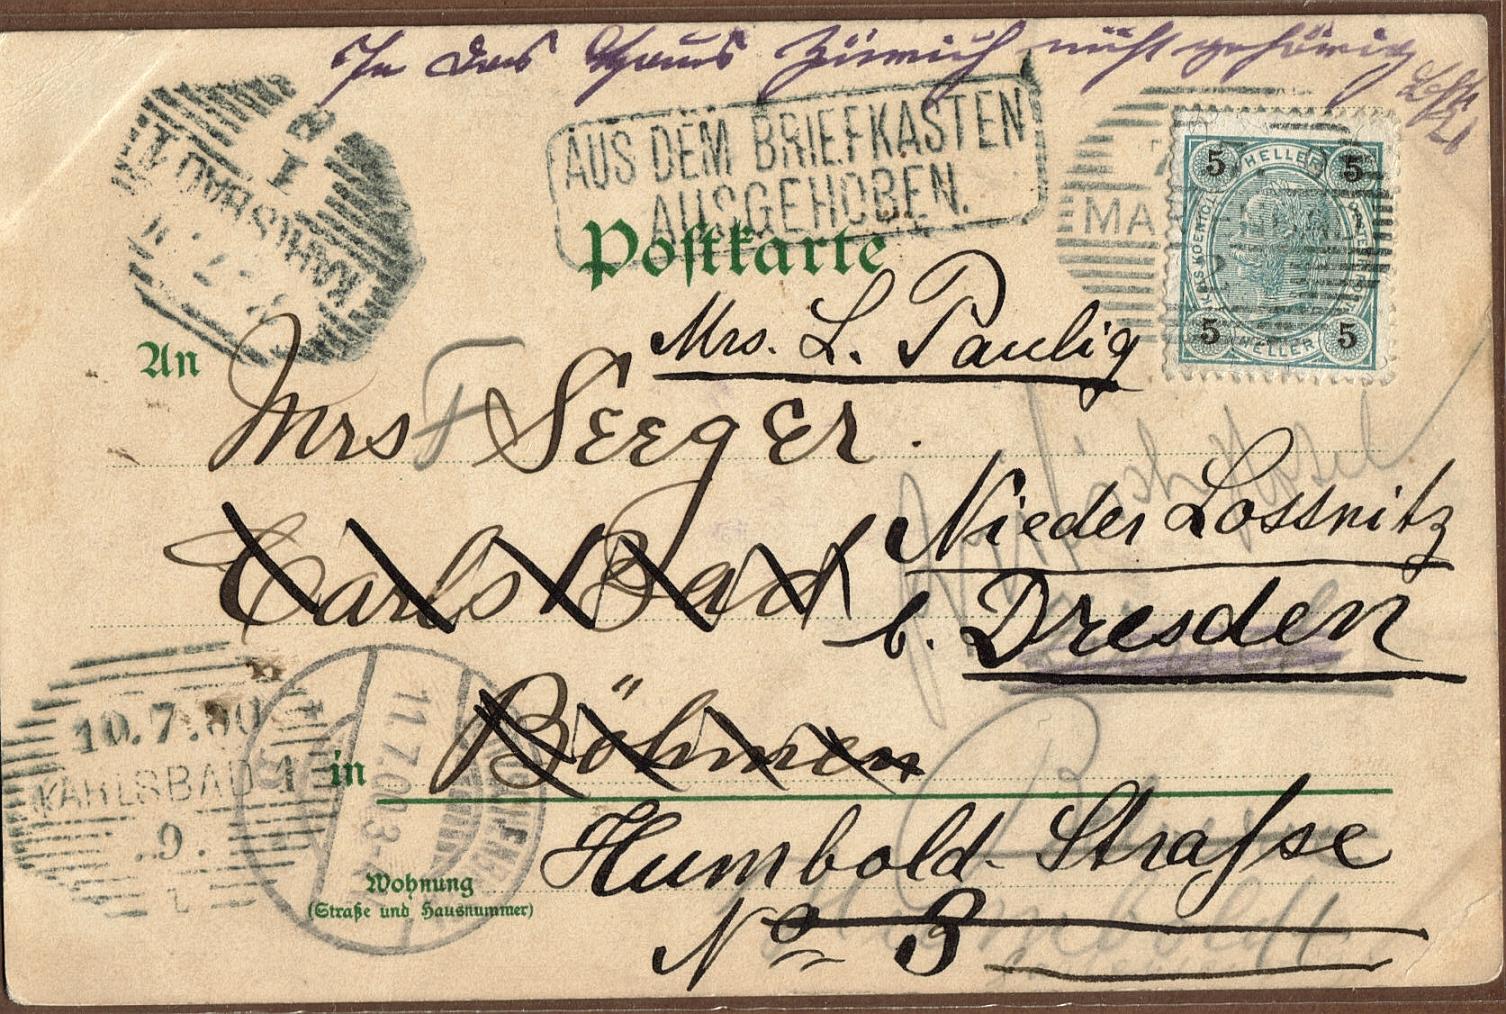 In das Haus Zürich nicht gehörig
AUS DEM BRIEFKASTEN
AUSGEHOBEN.
KARLSBAD 1
Postkarte
5 HELLER 5
5 HELLER 5
Mrs. L. Paulig
An
Mrs F Seeger.
Carls Bad
Nieder Lossnitz
b. Dresden
10.7.00
KARLSBAD 1
.9.
11.7.00.3-4
in
Böhmen
Humbold-Strasse
Wohnung
(Straße und Hausnummer)
No 3